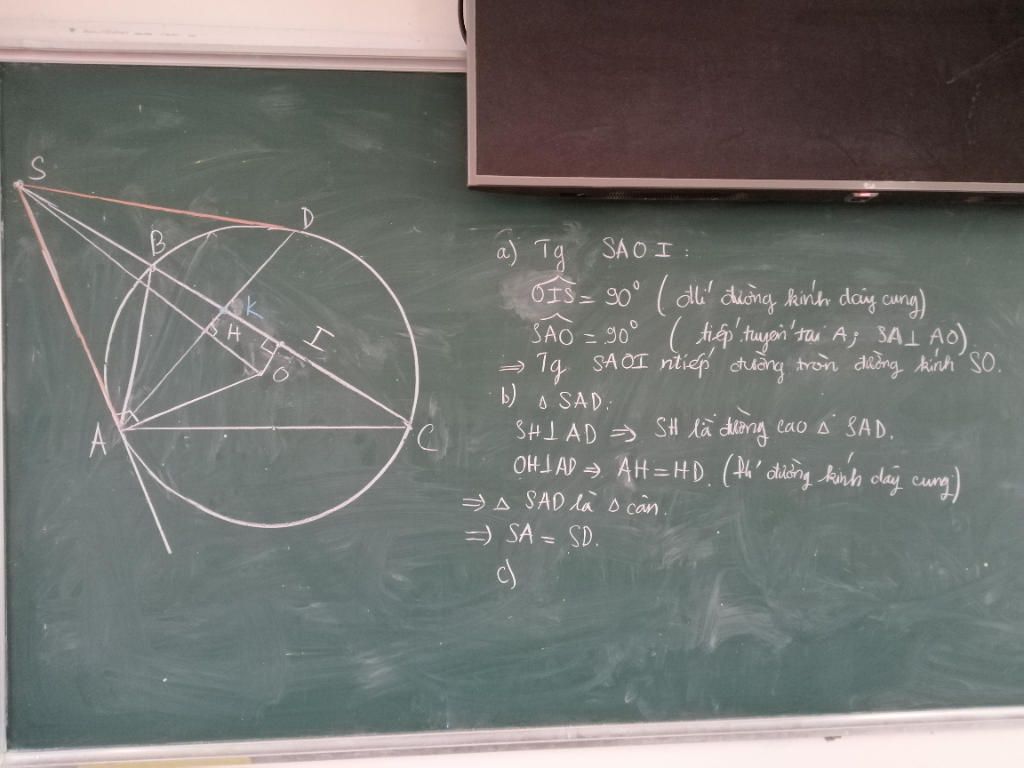 S
B
D
K
H
I
O
A
C
a) Tg SAOI:
OIS = 90° (đlí đường kính dây cung)
SAO = 90° (tiếp tuyến tại A; SA⊥AO)
⇒ Tg SAOI ntiếp đường tròn đường kính SO.
b) △ SAD.
SH⊥AD ⇒ SH là đường cao △ SAD.
OH⊥AD ⇒ AH = HD. (đlí đường kính dây cung)
⇒ △ SAD là △ cân.
⇒ SA = SD.
c)